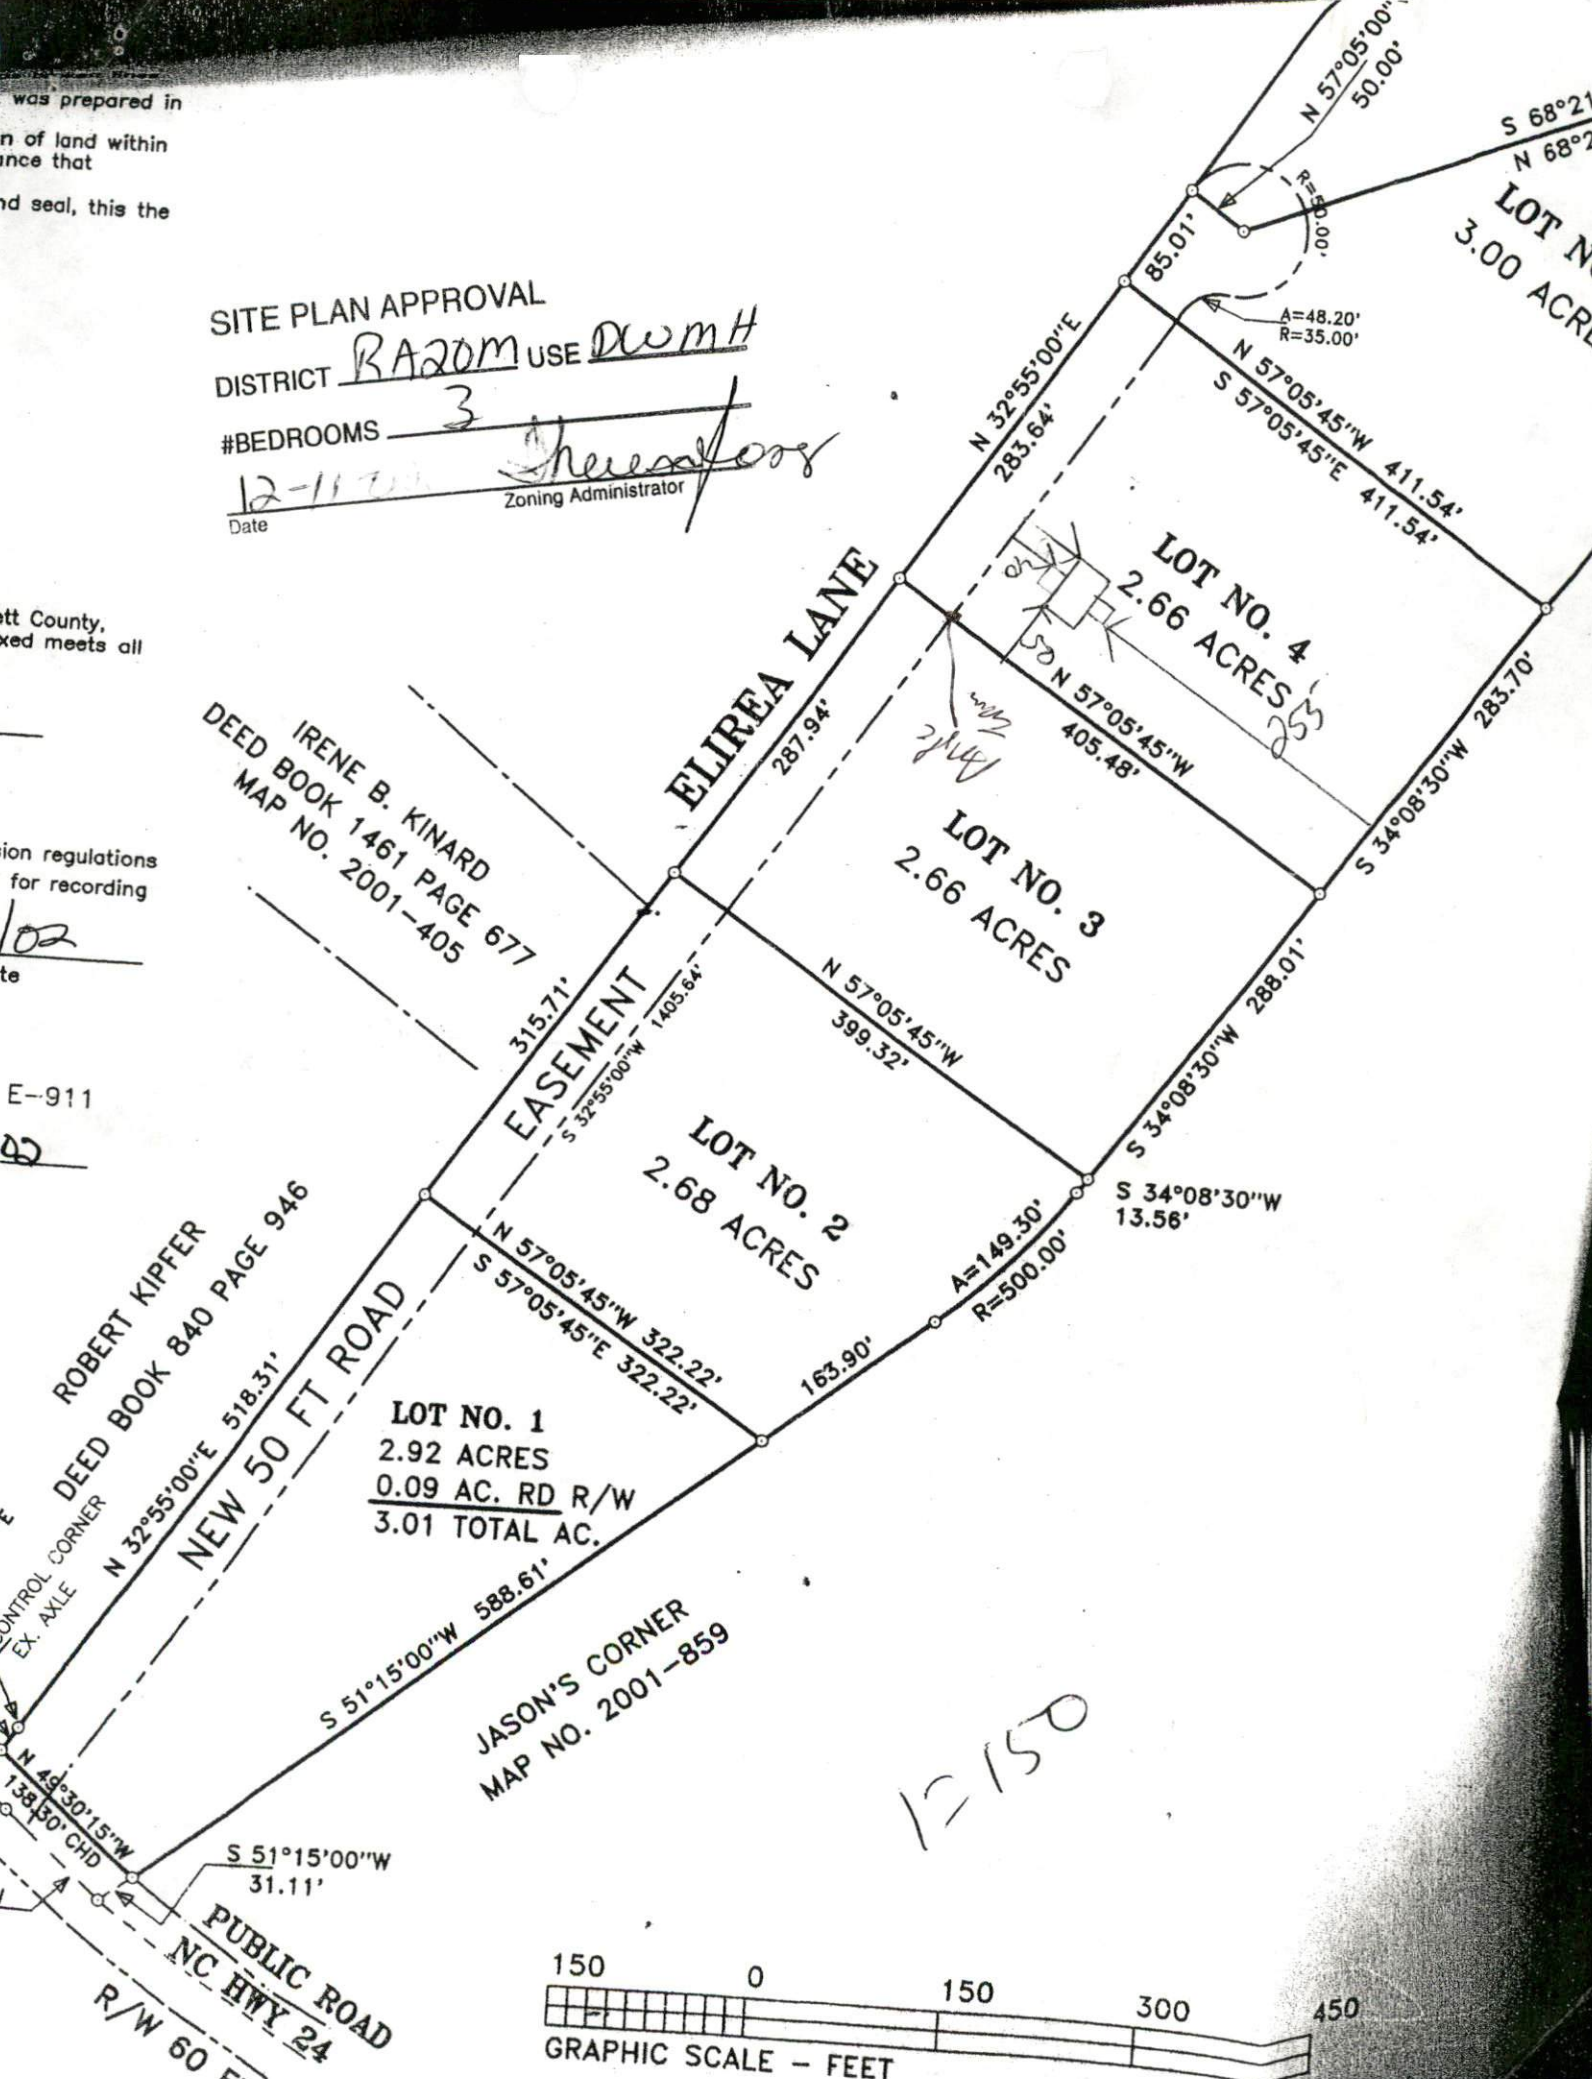 was prepared in
n of land within
ance that
nd seal, this the
SITE PLAN APPROVAL
DISTRICT RA20M USE DWMH
#BEDROOMS 3
12-11
Date
Zoning Administrator
ett County,
xed meets all
ion regulations
for recording
/02
te
E-911
02
N 57°05'00"
50.00'
S 68°21
N 68°2
R=50.00'
LOT NO
3.00 ACRE
85.01'
A=48.20'
R=35.00'
N 32°55'00"E
283.64'
N 57°05'45"W 411.54'
S 57°05'45"E 411.54'
LOT NO. 4
2.66 ACRES
40
50
253'
S 34°08'30"W 283.70'
ELIREA LANE
287.94'
N 57°05'45"W
405.48'
IRENE B. KINARD
DEED BOOK 1461 PAGE 677
MAP NO. 2001-405
LOT NO. 3
2.66 ACRES
S 34°08'30"W 288.01'
315.71'
EASEMENT
S 32°55'00"W 1405.64'
N 57°05'45"W
399.32'
LOT NO. 2
2.68 ACRES
S 34°08'30"W
13.56'
A=149.30'
R=500.00'
163.90'
N 57°05'45"W 322.22'
S 57°05'45"E 322.22'
ROBERT KIPFER
DEED BOOK 840 PAGE 946
N 32°55'00"E 518.31'
NEW 50 FT ROAD
LOT NO. 1
2.92 ACRES
0.09 AC. RD R/W
3.01 TOTAL AC.
E
CONTROL CORNER
EX. AXLE
S 51°15'00"W 588.61'
JASON'S CORNER
MAP NO. 2001-859
1=150
N 49°30'15"W
138.30' CHD
S 51°15'00"W
31.11'
PUBLIC ROAD
NC HWY 24
R/W 60 F
150 0 150 300 450
GRAPHIC SCALE - FEET